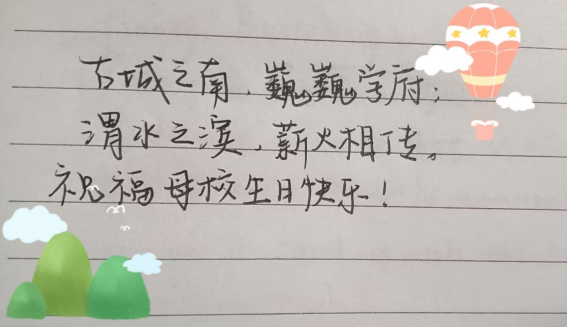 古城之南，巍巍学府；
渭水之滨，薪火相传。
祝福母校生日快乐！